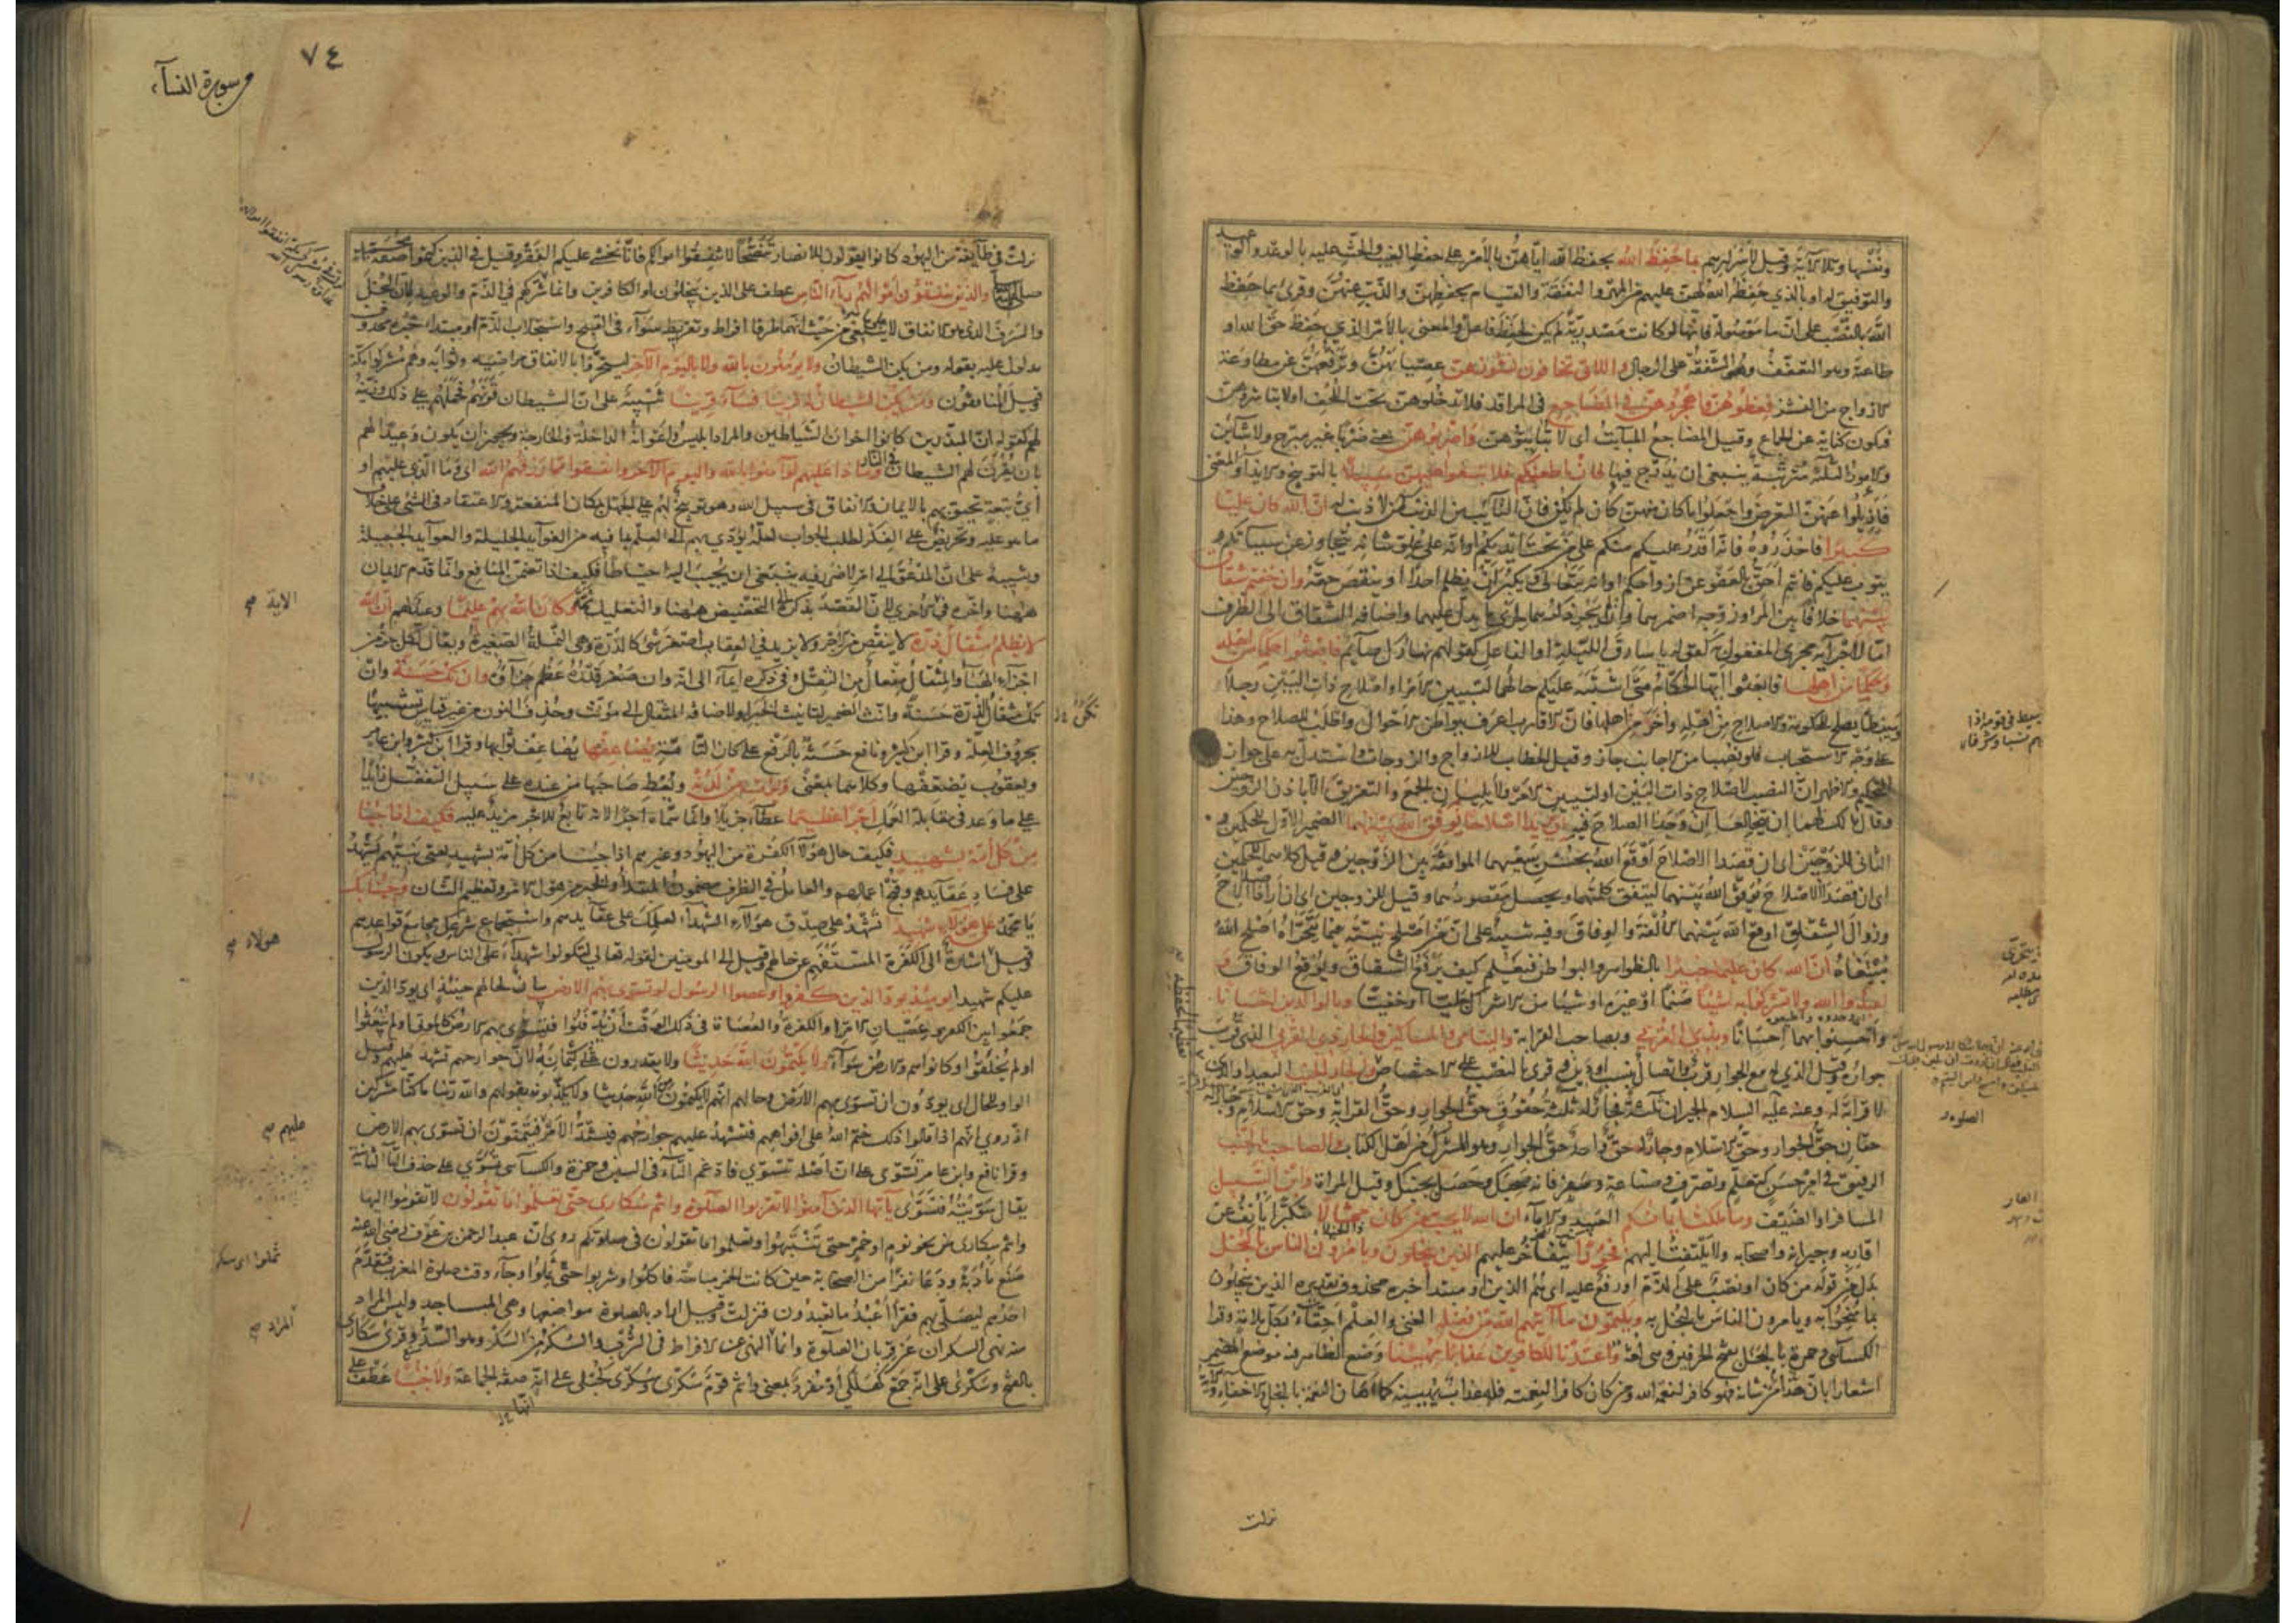 ونفسها وتلا الآية وقيل لأسرارهم بما حفظ الله بحفظ الله اياهن بالأمر على حفظ الغيب والحث عليه بالوعد والوعيد
والتوفيق له او بالذي حفظه الله لهن عليهم من المهر والنفقة والقيام بحفظهن والذب عنهن وقرئ بما حفظ
الله بالنصب على ان ما موصولة فانها لو كانت مصدرية لم يكن لحفظ فاعل والمعنى بالأمر الذي حفظ حق الله او
طاعته وهو التعفف والشفقة على الرجال واللاتي تخافون نشوزهن عصيانهن وترفعهن عن مطاوعة
الازواج من النشز فعظوهن واهجروهن في المضاجع في المراقد فلا تدخلوهن تحت اللحف او لا تباشروهن
فيكون كناية عن الجماع وقيل المضاجع المبايت اى لا تبايتوهن واضربوهن يعنى ضربا غير مبرح ولا شائن
والامور الثلثة مترتبة ينبغى ان يدرج فيها فان اطعنكم فلا تبغوا عليهن سبيلا بالتوبيخ والايذاء والمعنى
فأزيلوا عنهن التعرض واجعلوا ما كان منهن كأن لم يكن فان التائب من الذنب كمن لا ذنب له ان الله كان عليا
كبيرا فاحذروه فانه اقدر عليكم منكم على من تحت ايديكم او انه على علو شانه يتجاوز عن سيئاتكم و
يتوب عليكم فانتم احق بالعفو عن ازواجكم او انه يتعالى ويكبر ان يظلم احدا او ينقص حقه وان خفتم شقاق
بينهما خلافا بين المرأة وزوجها اضمرهما وان لم يجر ذكرهما لجرى ما يدل عليهما واضافة الشقاق الى الظرف
اما لاجرائه مجرى المفعول به كقوله يا سارق الليلة او الفاعل كقولهم نهارك صائم فابعثوا حكما من اهله
وحكما من اهلها فابعثوا ايها الحكام متى اشتبه عليكم حالهما لتبيين الامر او اصلاح ذات البين رجلا
وسيطا يصلح للحكومة والاصلاح من اهله وآخر من اهلها فان الاقارب اعرف ببواطن الاحوال واطلب للصلاح وهذا
على وجه الاستحباب فلو نصبا من الاجانب جاز وقيل الخطاب للازواج والزوجات واستدل به على جواز
التحكيم والاظهر ان النصب لاصلاح ذات البين او لتبيين الامر ولا يليان الجمع والتفريق الا باذن الزوجين
وقال مالك لهما ان يتخالعا ان وجدا الصلاح فيه ان يريدا اصلاحا يوفق الله بينهما الضمير الاول للحكمين و
الثانى للزوجين اى ان قصدا الاصلاح اوقع الله بحسن سعيهما الموافقة بين الزوجين وقيل كلاهما للحكمين
اى ان قصدا الاصلاح يوفق الله بينهما ليتفق كلمتهما ويحصل مقصودهما وقيل للزوجين اى ان ارادا الاصلاح
وزوال الشقاق اوقع الله بينهما الالفة والوفاق وفيه تنبيه على ان من اصلح نيته فيما يتحراه اصلح الله
مبتغاه ان الله كان عليما خبيرا بالظواهر والبواطن فيعلم كيف يرفع الشقاق ويوقع الوفاق و
اعبدوا الله ولا تشركوا به شيئا صنما او غيره او شيئا من الاشراك جليا او خفيا وبالوالدين احسانا
واحسنوا بهما احسانا وبذي القربى وبصاحب القرابة واليتامى والمساكين والجار ذى القربى الذى قرب
جواره وقيل الذى له مع الجوار قرب واتصال بنسب او دين وقرئ بالنصب على الاختصاص والجار الجنب البعيد او الذى
لا قرابة له وعنه عليه السلام الجيران ثلثة فجار له ثلثة حقوق حق الجوار وحق القرابة وحق الاسلام وجار له
حقان حق الجوار وحق الاسلام وجار له حق واحد حق الجوار وهو المشرك من اهل الكتاب والصاحب بالجنب
الرفيق فى امر حسن كتعلم وتصرف وصناعة وسفر فانه صحبك وحصل بجنبك وقيل المرأة وابن السبيل
المسافر او الضيف وما ملكت ايمانكم العبيد والاماء ان الله لا يحب من كان مختالا متكبرا يأنف عن
اقاربه وجيرانه واصحابه ولا يلتفت اليهم فخورا يتفاخر عليهم الذين يبخلون ويأمرون الناس بالبخل
بدل من قوله من كان او نصب على الذم او رفع عليه اى هم الذين او مبتدأ خبره محذوف تقديره الذين يبخلون
بما منحوا به ويامرون الناس بالبخل به ويكتمون ما آتيهم الله من فضله الغنى والعلم احقاء بكل ملامة وقرا
الكسائى وحمزة بالبخل بفتح الحرفين وهى لغة واعتدنا للكافرين عذابا مهينا وضع الظاهر فيه موضع المضمر
اشعارا بان من هذا شأنه فهو كافر لنعمة الله ومن كان كافرا لنعمته فله عذاب يهينه كما اهان النعمة بالبخل والاخفاء والآية
نزلت
٧٤
سورة النسآء
نزلت فى طائفة من اليهود كانوا يقولون للانصار تنصحا لا تنفقوا اموالكم فانا نخشى عليكم الفقر وقيل فى الذين كتموا صفة محمد
والذين ينفقون أموالهم رئاء الناس عطف على الذين يبخلون او الكافرين وانما شركهم فى الذم والوعيد لان البخل
والسرف الذى هو الانفاق لا على ما ينبغى من حيث انهما طرفا افراط وتفريط سواء فى القبح واستجلاب الذم او مبتدأ خبره محذوف
مدلول عليه بقوله ومن يكن الشيطان ولا يؤمنون بالله ولا باليوم الآخر ليتحروا بالانفاق مراضيه وثوابه وهم مشركوا مكة
وقيل المنافقون ومن يكن الشيطان له قرينا فساء قرينا تنبيه على ان الشيطان قرنهم فحملهم على ذلك وزينه
لهم كقوله ان المبذرين كانوا اخوان الشياطين والمراد ابليس واعوانه الداخلة والخارجة ويجوز ان يكون وعيدا لهم
بان يقرن لهم الشيطان فى النار وماذا عليهم لو آمنوا بالله واليوم الآخر وانفقوا مما رزقهم الله اى وما الذى عليهم او
اى تبعة تحيق بهم بالايمان والانفاق فى سبيل الله وهو توبيخ لهم على الجهل بمكان المنفعة والاعتقاد فى الشئ على خلاف
ما هو عليه وتحريض على الفكر لطلب الجواب لعله يؤدى بهم الى العلم بما فيه من الفوائد الجليلة والعوائد الجميلة
وتنبيه على ان المدعو الى امر لا ضرر فيه ينبغى ان يجيب اليه احتياطا فكيف اذا تضمن المنافع وانما قدم الايمان
ههنا واخره فى الاخرى لان القصد بذكره الى التخصيص ههنا والتعليل ثمة وكان الله بهم عليما وعيد لهم ان الله
لا يظلم مثقال ذرة لا ينقص من الاجر ولا يزيد فى العقاب اصغر شئ كالذرة وهى النملة الصغيرة ويقال لكل جزء من
اجزاء الهباء والمثقال مفعال من الثقل وفى ذكره ايماء الى انه وان صغر قدره عظم جزاؤه وان تك حسنة وان
تك مثقال الذرة حسنة وانث الضمير لتانيث الخبر او لاضافة المثقال الى مؤنث وحذف النون من غير قياس تشبيها
بحروف العلة وقرا ابن كثير ونافع حسنة بالرفع على كان التامة يضاعفها يضاعف ثوابها وقرا ابن كثير وابن عامر
ويعقوب يضعفها وكلاهما بمعنى ويؤت من لدنه ويعط صاحبها من عنده على سبيل التفضل زائدا
على ما وعد فى مقابلة العمل اجرا عظيما عطاء جزيلا وانما سماه اجرا لانه تابع للاجر مزيد عليه فكيف اذا جئنا
من كل امة بشهيد فكيف حال هؤلاء الكفرة من اليهود وغيرهم اذا جئنا من كل امة بشهيد يعنى نبيهم يشهد
على فساد عقايدهم وقبح اعمالهم والعامل فى الظرف مضمون المبتدأ والخبر من هول الامر وتعظيم الشان وجئنا بك
يا محمد على هؤلاء شهيدا تشهد على صدق هؤلاء الشهداء لعلمك على عقايدهم واستجماع شرعك مجامع قواعدهم
وقيل اشارة الى الكفرة المستفهم عن حالهم وقيل الى المومنين لقوله تعالى لتكونوا شهداء على الناس ويكون الرسول
عليكم شهيدا يومئذ يود الذين كفروا وعصوا الرسول لو تسوى بهم الارض بيان لحالهم حينئذ اى يود الذين
جمعوا بين الكفر وعصيان الامر او الكفرة والعصاة فى ذلك الوقت ان يدفنوا فتسوى بهم الارض كالموتى او لم يبعثوا
او لم يخلقوا او كانوا هم والارض سواء ولا يكتمون الله حديثا ولا يقدرون على كتمانه لان جوارحهم تشهد عليهم وقيل
الواو للحال اى يودون ان تسوى بهم الارض وحالهم انهم لا يكتمون من الله حديثا ولا يكذبونه بقولهم والله ربنا ما كنا مشركين
اذ روى انهم اذا قالوا ذلك ختم الله على افواههم فتشهد عليهم جوارحهم فيشتد الامر فيتمنون ان تسوى بهم الارض
وقرا نافع وابن عامر تسوى على ان اصله تتسوى فادغم التاء فى السين وحمزة والكسائى تسوى على حذف التاء الثانية
يقال سويته فتسوى يا ايها الذين آمنوا لا تقربوا الصلوة وانتم سكارى حتى تعلموا ما تقولون لا تقوموا اليها
وانتم سكارى من نحو نوم او خمر حتى تنتبهوا وتعلموا ما تقولون فى صلوتكم روى ان عبد الرحمن بن عوف رضى الله عنه
صنع مأدبة ودعا نفرا من الصحابة حين كانت الخمر مباحة فاكلوا وشربوا حتى ثملوا وجاء وقت صلوة المغرب فتقدم
احدهم ليصلى بهم فقرأ اعبد ما تعبدون فنزلت وقيل اراد بالصلوة مواضعها وهى المساجد وليس المراد
منه نهى السكران عن قربان الصلوة وانما النهى عن الافراط فى الشرب والسكر من السكر وهو السد وقرئ سكارى
بالفتح وسكرى على انه جمع كهلكى او مفرد بمعنى وانتم قوم سكرى وسكرى كحبلى على انه صفة الجماعة ولا جنبا عطف على
الاية صح
تكن
هولاء صح
عليهم صح
ثملوا اى سكر
المراد صح
انها